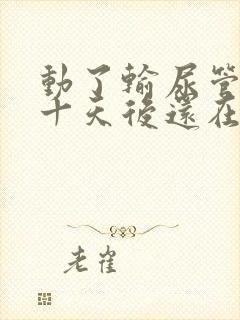 動了輸尿管
十天後還在
老崔